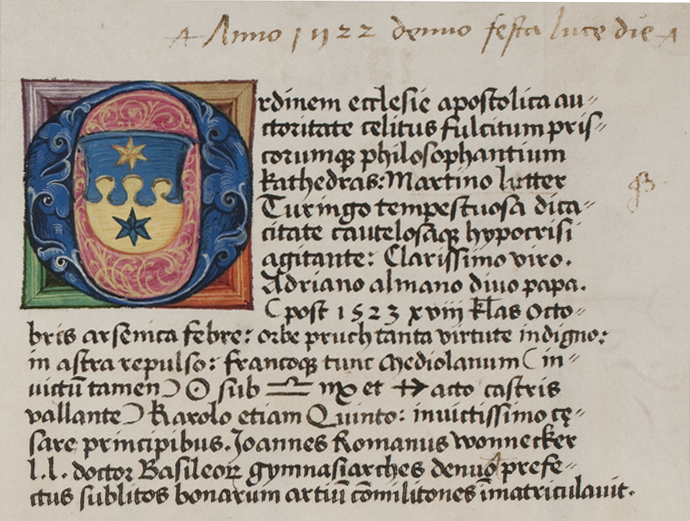 Anno 1522 denuo festa luce die
Ordinem ecclesie apostolica au⸗
ctoritate celitus fulcitum pris⸗
corumqꝫ philosophantium
kathedras: Martino lutter
Turingo tempestuosa dica⸗
citate cautelosaqꝫ hypocrisi
agitante: Clarissimo viro.
Adriano almano diuo papa.
(post 1523 xviij kl̄as Octo⸗
bris arsenica febre: orbe pruch tanta virtute indigno:
in astra repulso: francoqꝫ tunc Mediolanum (in⸗
uictū tamen) ☉ sub ♎ ♏ et ♐ acto castris
vallante) Karolo etiam Quinto: inuictissimo cę⸗
sare principibus. Joannes Romanus wonnecker
l.l. doctor Basileoꝝ gymnasiarches denuo prefe⸗
ctus sublitos bonarum artiū cōmilitones īmatriculauit.